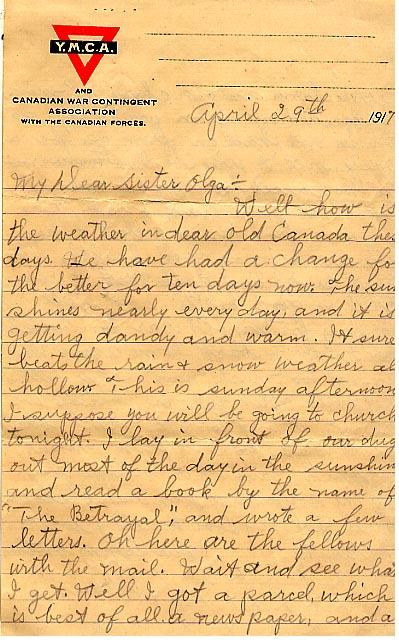 Y.M.C.A.
AND
CANADIAN WAR CONTINGENT
ASSOCIATION
WITH THE CANADIAN FORCES.
April 29th 1917
My Dear Sister Olga:-
Well how is
the weather in dear old Canada these
days. We have had a change for
the better for ten days now. The sun
shines nearly every day, and it is
getting dandy and warm. It sure
beats the rain & snow weather all
hollow. This is sunday afternoon
I suppose you will be going to church
tonight. I lay in front of our dug
out most of the day in the sunshin
and read a book by the name of
"The Betrayal", and wrote a few
letters. Oh here are the fellows
with the mail. Wait and see what
I get. Well I got a parcel, which
is best of all a newspaper, and a